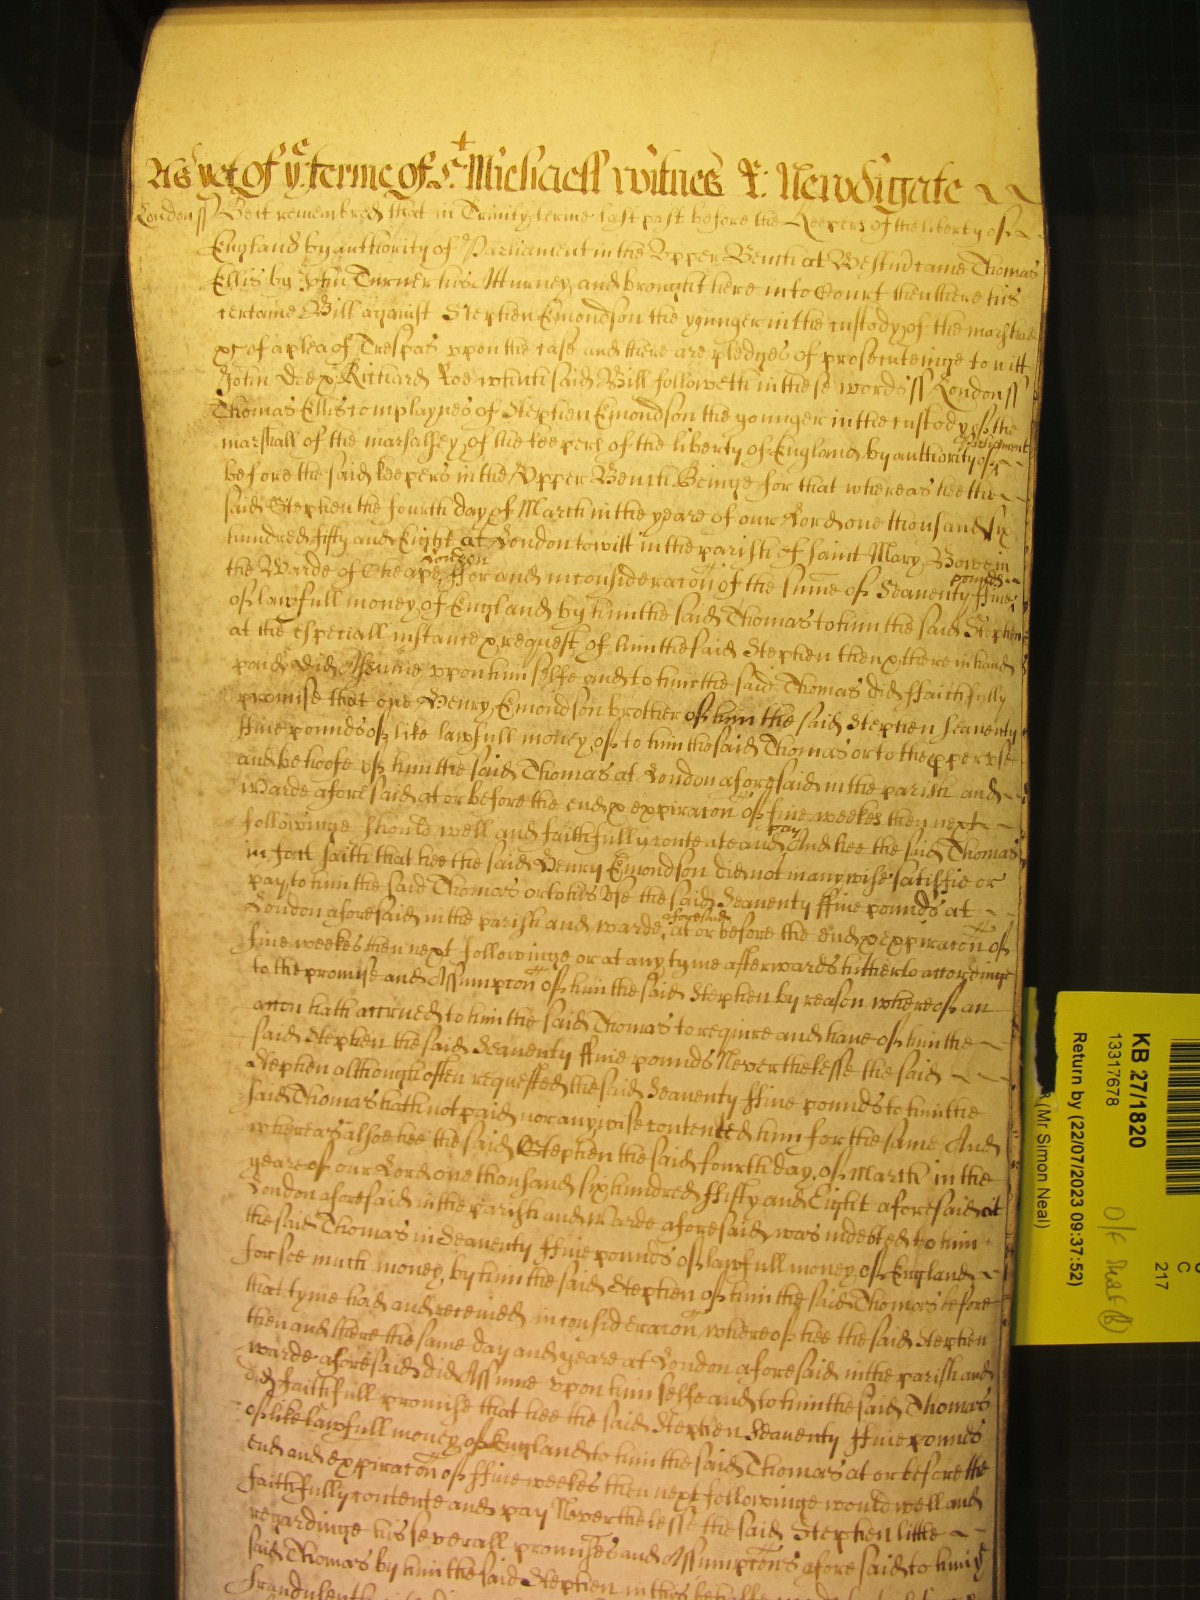 As yet of ye terme of St. Michaell witnes R: Newdigate
London ss Be it remembred that in Trinity terme last past before the Keepers of the liberty of
England by authority of Parliament in the Upper Bench at Westm came Thomas
Ellis by John Turner his Atturney and brought here into Court then there his
certaine Bill against Stephen Emondson the younger in the custody of the marshall
&c of a plea of Trespas upon the case and there are pledges of prosecuteinge to witt
John Doe & Richard Roe which said Bill followeth in these words ss London ss
Thomas Ellis complaynes of Stephen Emondson the younger in the custody of the
marshall of the marshalsey of the keepers of the liberty of England by authority of Parliament
before the said keepers in the Upper Bench Beinge for that whereas hee the
said Stephen the fourth day of March in the yeare of our Lord one thousand six
hundred fifty and Eight at London to witt in the parish of Saint Mary Bowe in
the Warde of Cheape London ffor and in consideracon of the sume of Seaventy ffive pounds
of lawfull money of England by him the said Thomas to him the said Stephen
at the especiall instance & request of him the said Stephen then & there in hand
paid did Assume upon himselfe and to him the said Thomas did ffaithfully
promise that one Henry Emondson brother of him the said Stephen Seaventy
ffive pounds of like lawfull money of to him the said Thomas or to the pper use
and behoofe of him the said Thomas at London aforesaid in the parish and
Warde aforesaid at or before the end & expiracon of five weekes then next
followinge should well and faithfully contente and pay And hee the said Thomas
in fact saith that hee the said Henry Emondson did not in any wise satisfie or
pay to him the said Thomas or to his use the said Seaventy ffive pounds at
London aforesaid in the parish and warde aforesaid at or before the end & expiracon of
five weekes then next followinge or at any tyme afterwards hitherto accordinge
to the promise and Assumpcon of him the said Stephen by reason whereof an
accon hath accrued to him the said Thomas to require and have of him the
said Stephen the said Seaventy ffive pounds Neverthelesse the said
Stephen although often requested the said Seaventy ffive pounds to him the
said Thomas hath not paid nor any wise contented him for the same And
whereas alsoe hee the said Stephen the said fourth day of March in the
yeare of our Lord one thousand six hundred ffifty and Eight aforesaid at
London aforesaid in the parish and Warde aforesaid was indebted to him
the said Thomas in Seaventy ffive pounds of lawfull money of England
for soe much money by him the said Stephen of him the said Thomas before
that tyme had and received in consideracon whereof hee the said Stephen
then and there the same day and yeare at London aforesaid in the parish and
warde aforesaid did Assume upon himselfe and to him the said Thomas
did faithfull promise that hee the said Stephen Seaventy ffive pounds
of like lawfull money of England to him the said Thomas at or before the
end and expiracon of ffive weekes then next followinge would well and
faithfully contente and pay Neverthelesse the said Stephen little
regardinge his severall promises and Assumpcons aforesaid to him
said Thomas by him the said Stephen in this behalfe
KB 27/1820
13317678
Return by (22/07/2023 09:37:52)
(Mr Simon Neal)
C
217